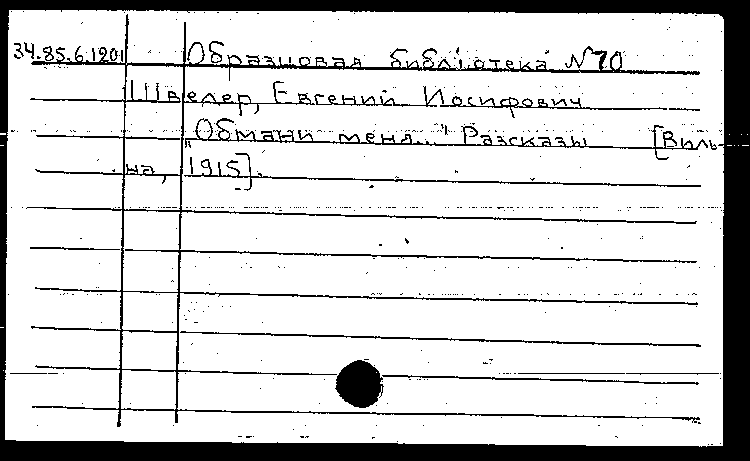 34.85.6.1201 Образцовая библiотека №70
Швелер, Евгений Иосифович
„Обмани меня..." Разсказы [Виль-
на, 1915].